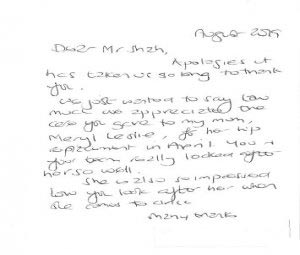 August 2019
Dear Mr Shah,
Apologies it
has taken us so long to thank
you.
We just wanted to say how
much we appreciated the
care you gave to my mum,
Meryl Leslie, for her hip
replacement in April. You &
your team really looked after
her so well.
She is also so impressed
how you look after her when
she comes to clinic
Many thanks